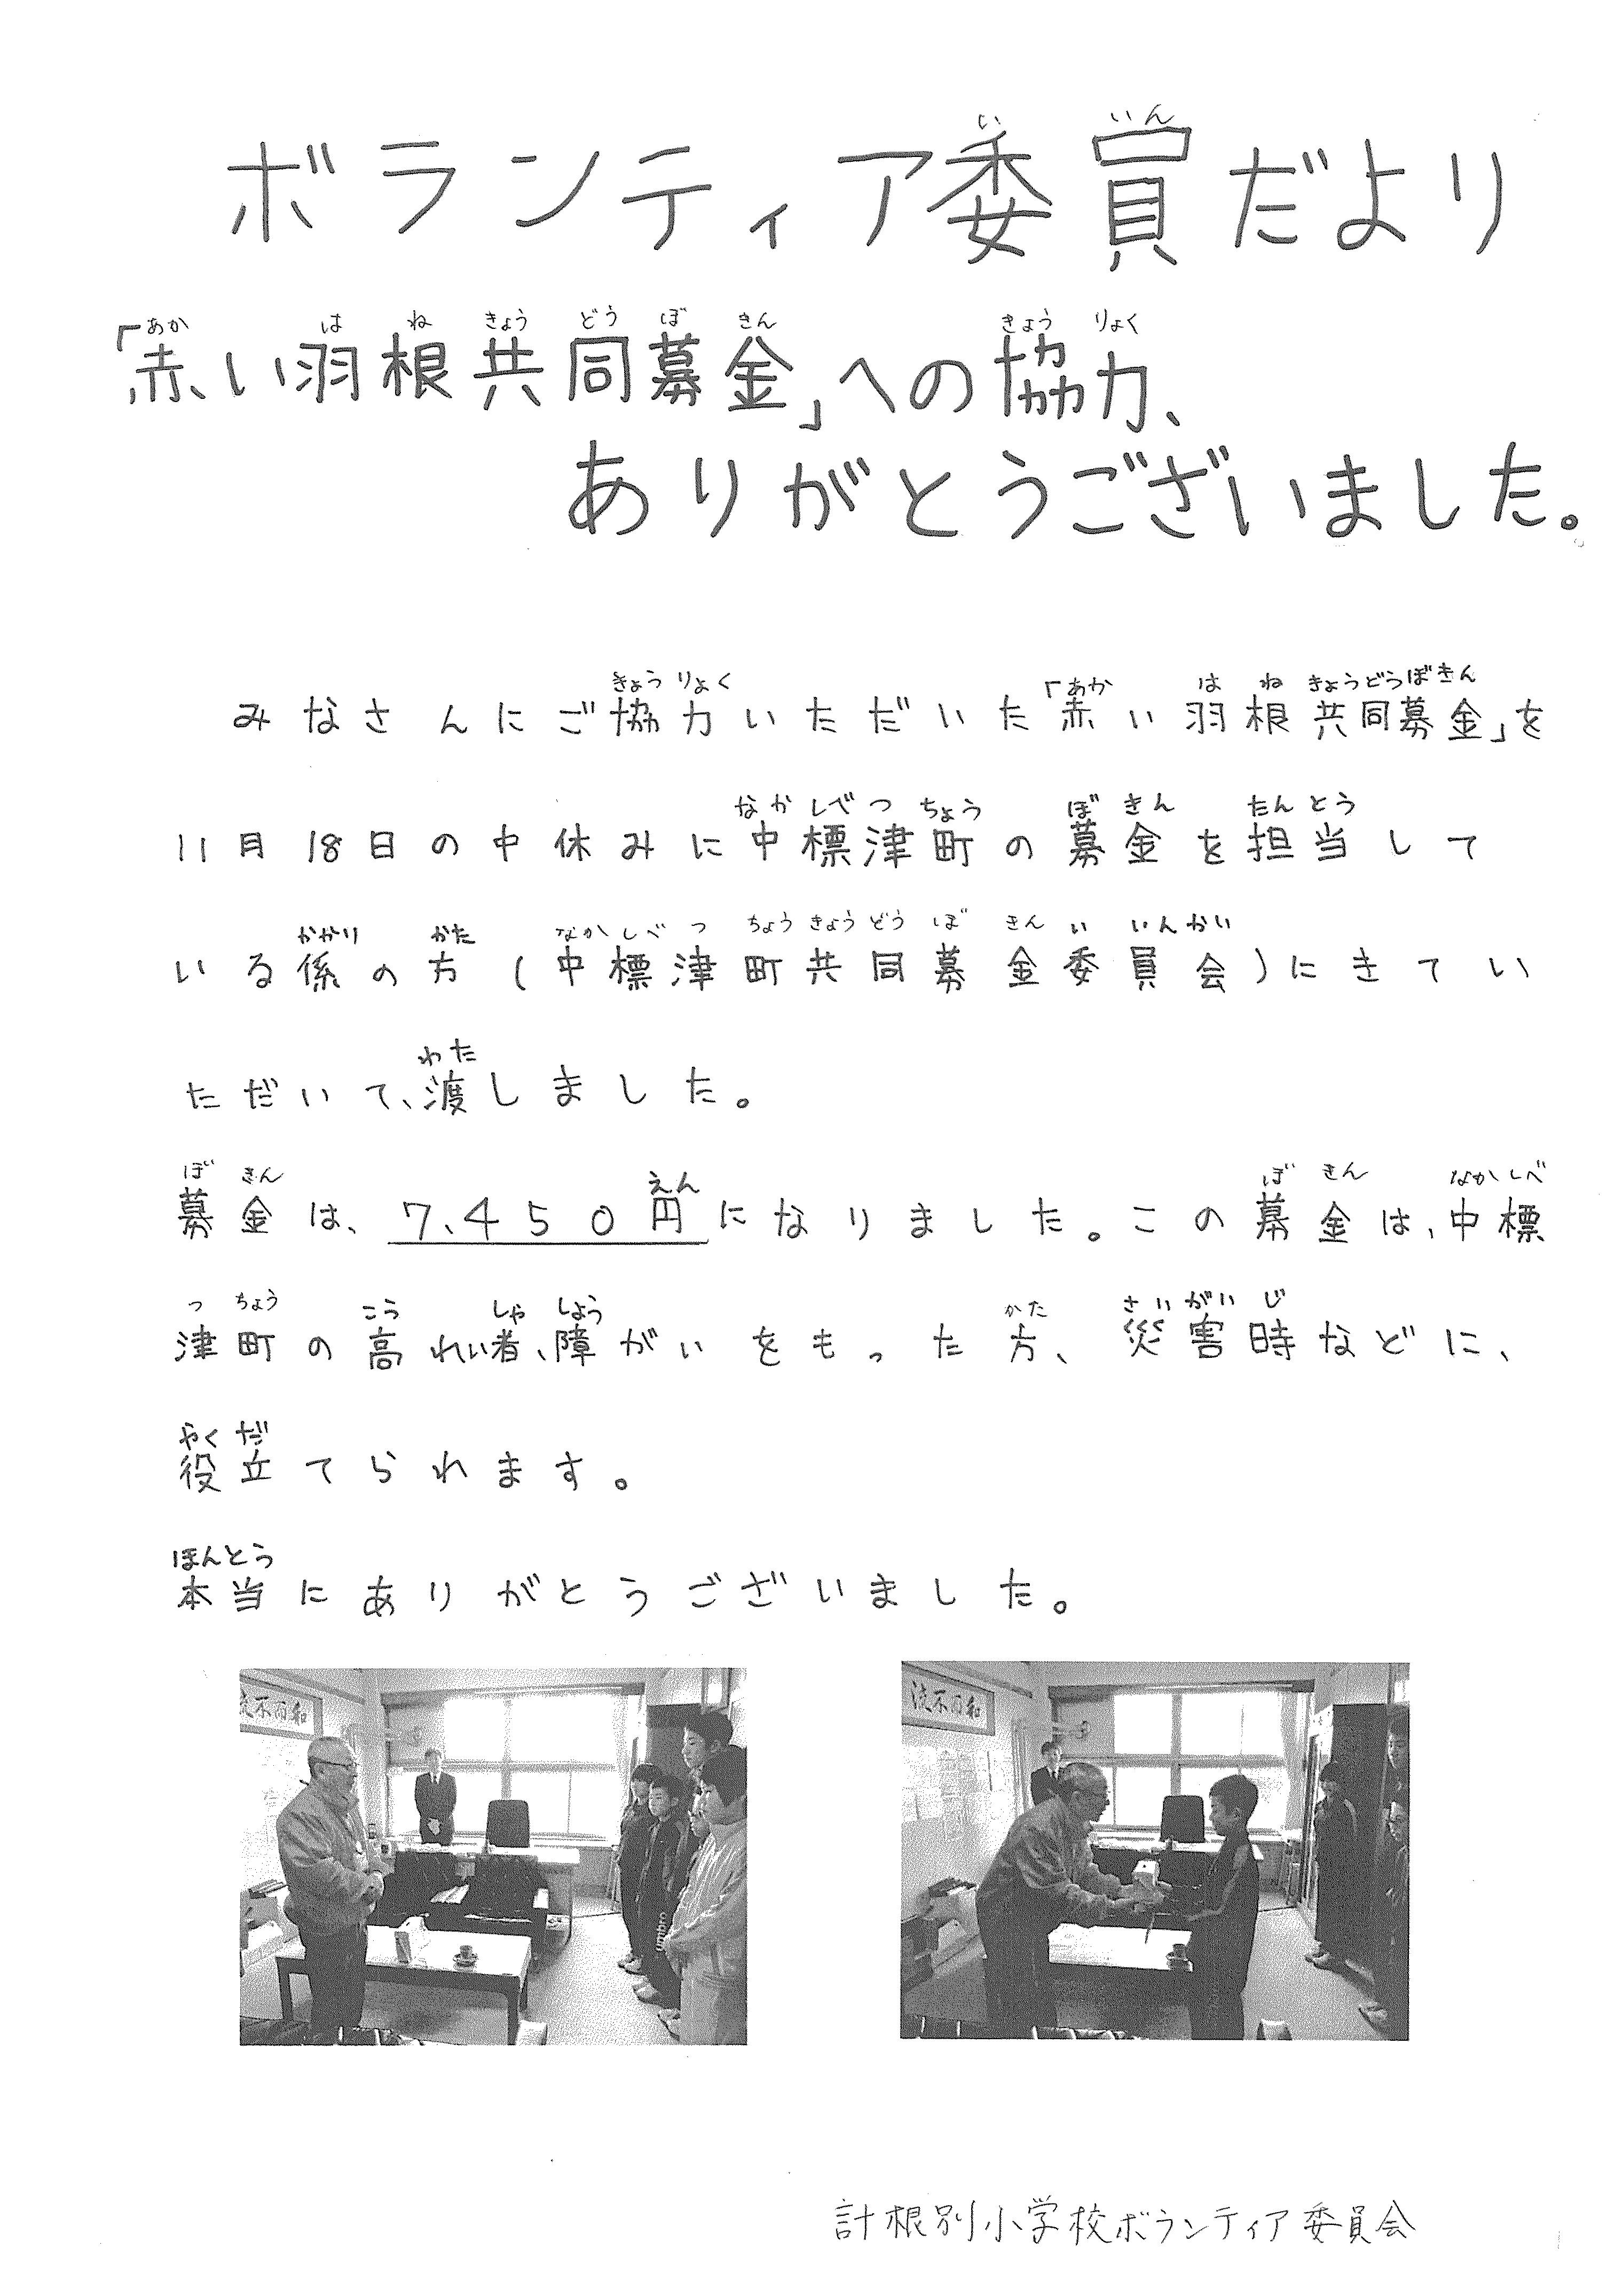 ボランティア委員だより
「赤い羽根共同募金」への協力、
ありがとうございました。
みなさんにご協力いただいた「赤い羽根共同募金」を
11月18日の中休みに中標津町の募金を担当して
いる係の方(中標津町共同募金委員会)にきてい
ただいて、渡しました。
募金は、7,450円になりました。この募金は、中標
津町の高れい者、障がいをもった方、災害時などに、
役立てられます。
本当にありがとうございました。
流不而和
流不而和
計根別小学校ボランティア委員会